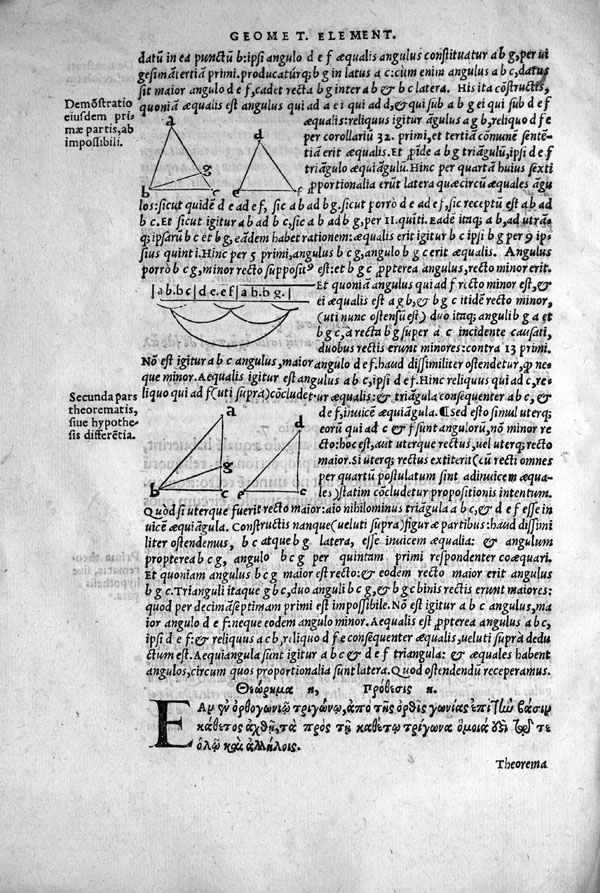 GEOMET. ELEMENT.
datũ in ea punctũ b: ipsi angulo d e f æqualis angulus constituatur a b g, per vi
gesimãtertiã primi. producatúrq; b g in latus a c: cum enim angulus a b c, datus
sit maior angulo d e f, cadet recta b g inter a b & b c latera. His ita cõstructis,
Demõstratio
eiusdem pri-
mæ partis, ab
impossibili.
quoniã æqualis est angulus qui ad a ei qui ad d, & qui sub a b g ei qui sub d e f
æqualis: reliquus igitur ãgulus a g b, reliquo d f e
per corollariũ 32. primi, et tertiã cõmunẽ sentẽ-
tiã erit æqualis. Et ꝓĩde a b g triãgulũ, ipsi d e f
triãgulo æquiãgulũ. Hinc per quartã huius sexti
ꝓportionalia erũt latera quæ circũ æquales ãgu
a
d
g
b
c
e
f
los: sicut quidẽ d e ad e f, sic a b ad b g. sicut porrò d e ad e f, sic receptũ est a b ad
b c. Et sicut igitur a b ad b c, sic a b ad b g, per 11. quĩti. Eadẽ itaq; a b, ad utrã-
q; ipsarũ b c et b g, eãdem habet rationem: æqualis erit igitur b c ipsi b g per 9 ip-
sius quinti. Hinc per 5 primi, angulus b c g, angulo b g c erit æqualis. Angulus
porrò b c g, minor recto supposit⁹ est: et b g c ꝓpterea angulus, recto minor erit.
|a b. b c|d e. e f|a b. b g.|
Et quoniã angulus qui ad f recto minor est, &
ei æqualis est a g b, & b g c itidẽ recto minor,
(uti nunc ostensũ est) duo itaq; anguli b g a et
b g c, à recta b g super a c incidente causati,
duobus rectis erunt minores: contra 13 primi.
Nõ est igitur a b c angulus, maior angulo d e f. haud dissimiliter ostendetur, ꝙ ne-
que minor. Aequalis igitur est angulus a b c, ipsi d e f. Hinc reliquus qui ad c, re-
liquo qui ad f (uti supra) cõcludetur æqualis: & triãgula consequenter a b c, &
Secunda pars
theorematis,
siue hypothe-
sis differẽtia.
d e f, inuicẽ æquiãgula. ¶Sed esto simul uterq;
eorũ qui ad c & f sunt angulorũ, nõ minor re
cto: hoc est, aut uterque rectus, uel uterq; recto
maior. Si uterq; rectus extiterit (cũ recti omnes
per quartũ postulatum sint adinuicem æqua-
les) statim cõcludetur propositionis intentum.
a
d
g
b
c
e
f
Quòd si uterque fuerit recto maior: aio nihilominus triãgula a b c, & d e f esse in
uicẽ æquiãgula. Constructis nanque (ueluti supra) figuræ partibus: haud dissimi
liter ostendemus, b c atque b g latera, esse inuicem æqualia: & angulum
propterea b c g, angulo b c g per quintam primi respondenter coæquari.
Et quoniam angulus b c g maior est recto: & eodem recto maior erit angulus
b g c. Trianguli itaque g b c, duo anguli b c g, & b g c binis rectis erunt maiores:
quod per decimãseptimam primi est impossibile. Nõ est igitur a b c angulus, ma
ior angulo d e f: neque eodem angulo minor. Aequalis est ꝓpterea angulus a b c,
ipsi d e f: & reliquus a c b, reliquo d f e consequenter æqualis, ueluti suprà dedu
ctum est. Aequiãgula sunt igitur a b c & d e f triangula: & æquales habent
angulos, circum quos proportionalia sunt latera. Quod ostendendũ receperamus.
Θεώρημα η, Πρόθεσις η.
Εαν ἐν ὀρθογωνίῳ τριγώνῳ, ἀπὸ τῆς ὀρθῆς γωνίας ἐπὶ τὴν βάσιν
κάθετος ἀχθῇ, τὰ πρὸς τῇ καθέτῳ τρίγωνα ὅμοιά ἐστι τῷ τε
ὅλῳ καὶ ἀλλήλοις.
Theorema